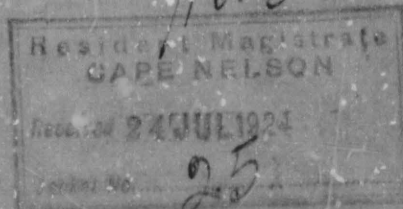 Resident Magistrate
CAPE NELSON
Received 24 JUL 1924
No. 25